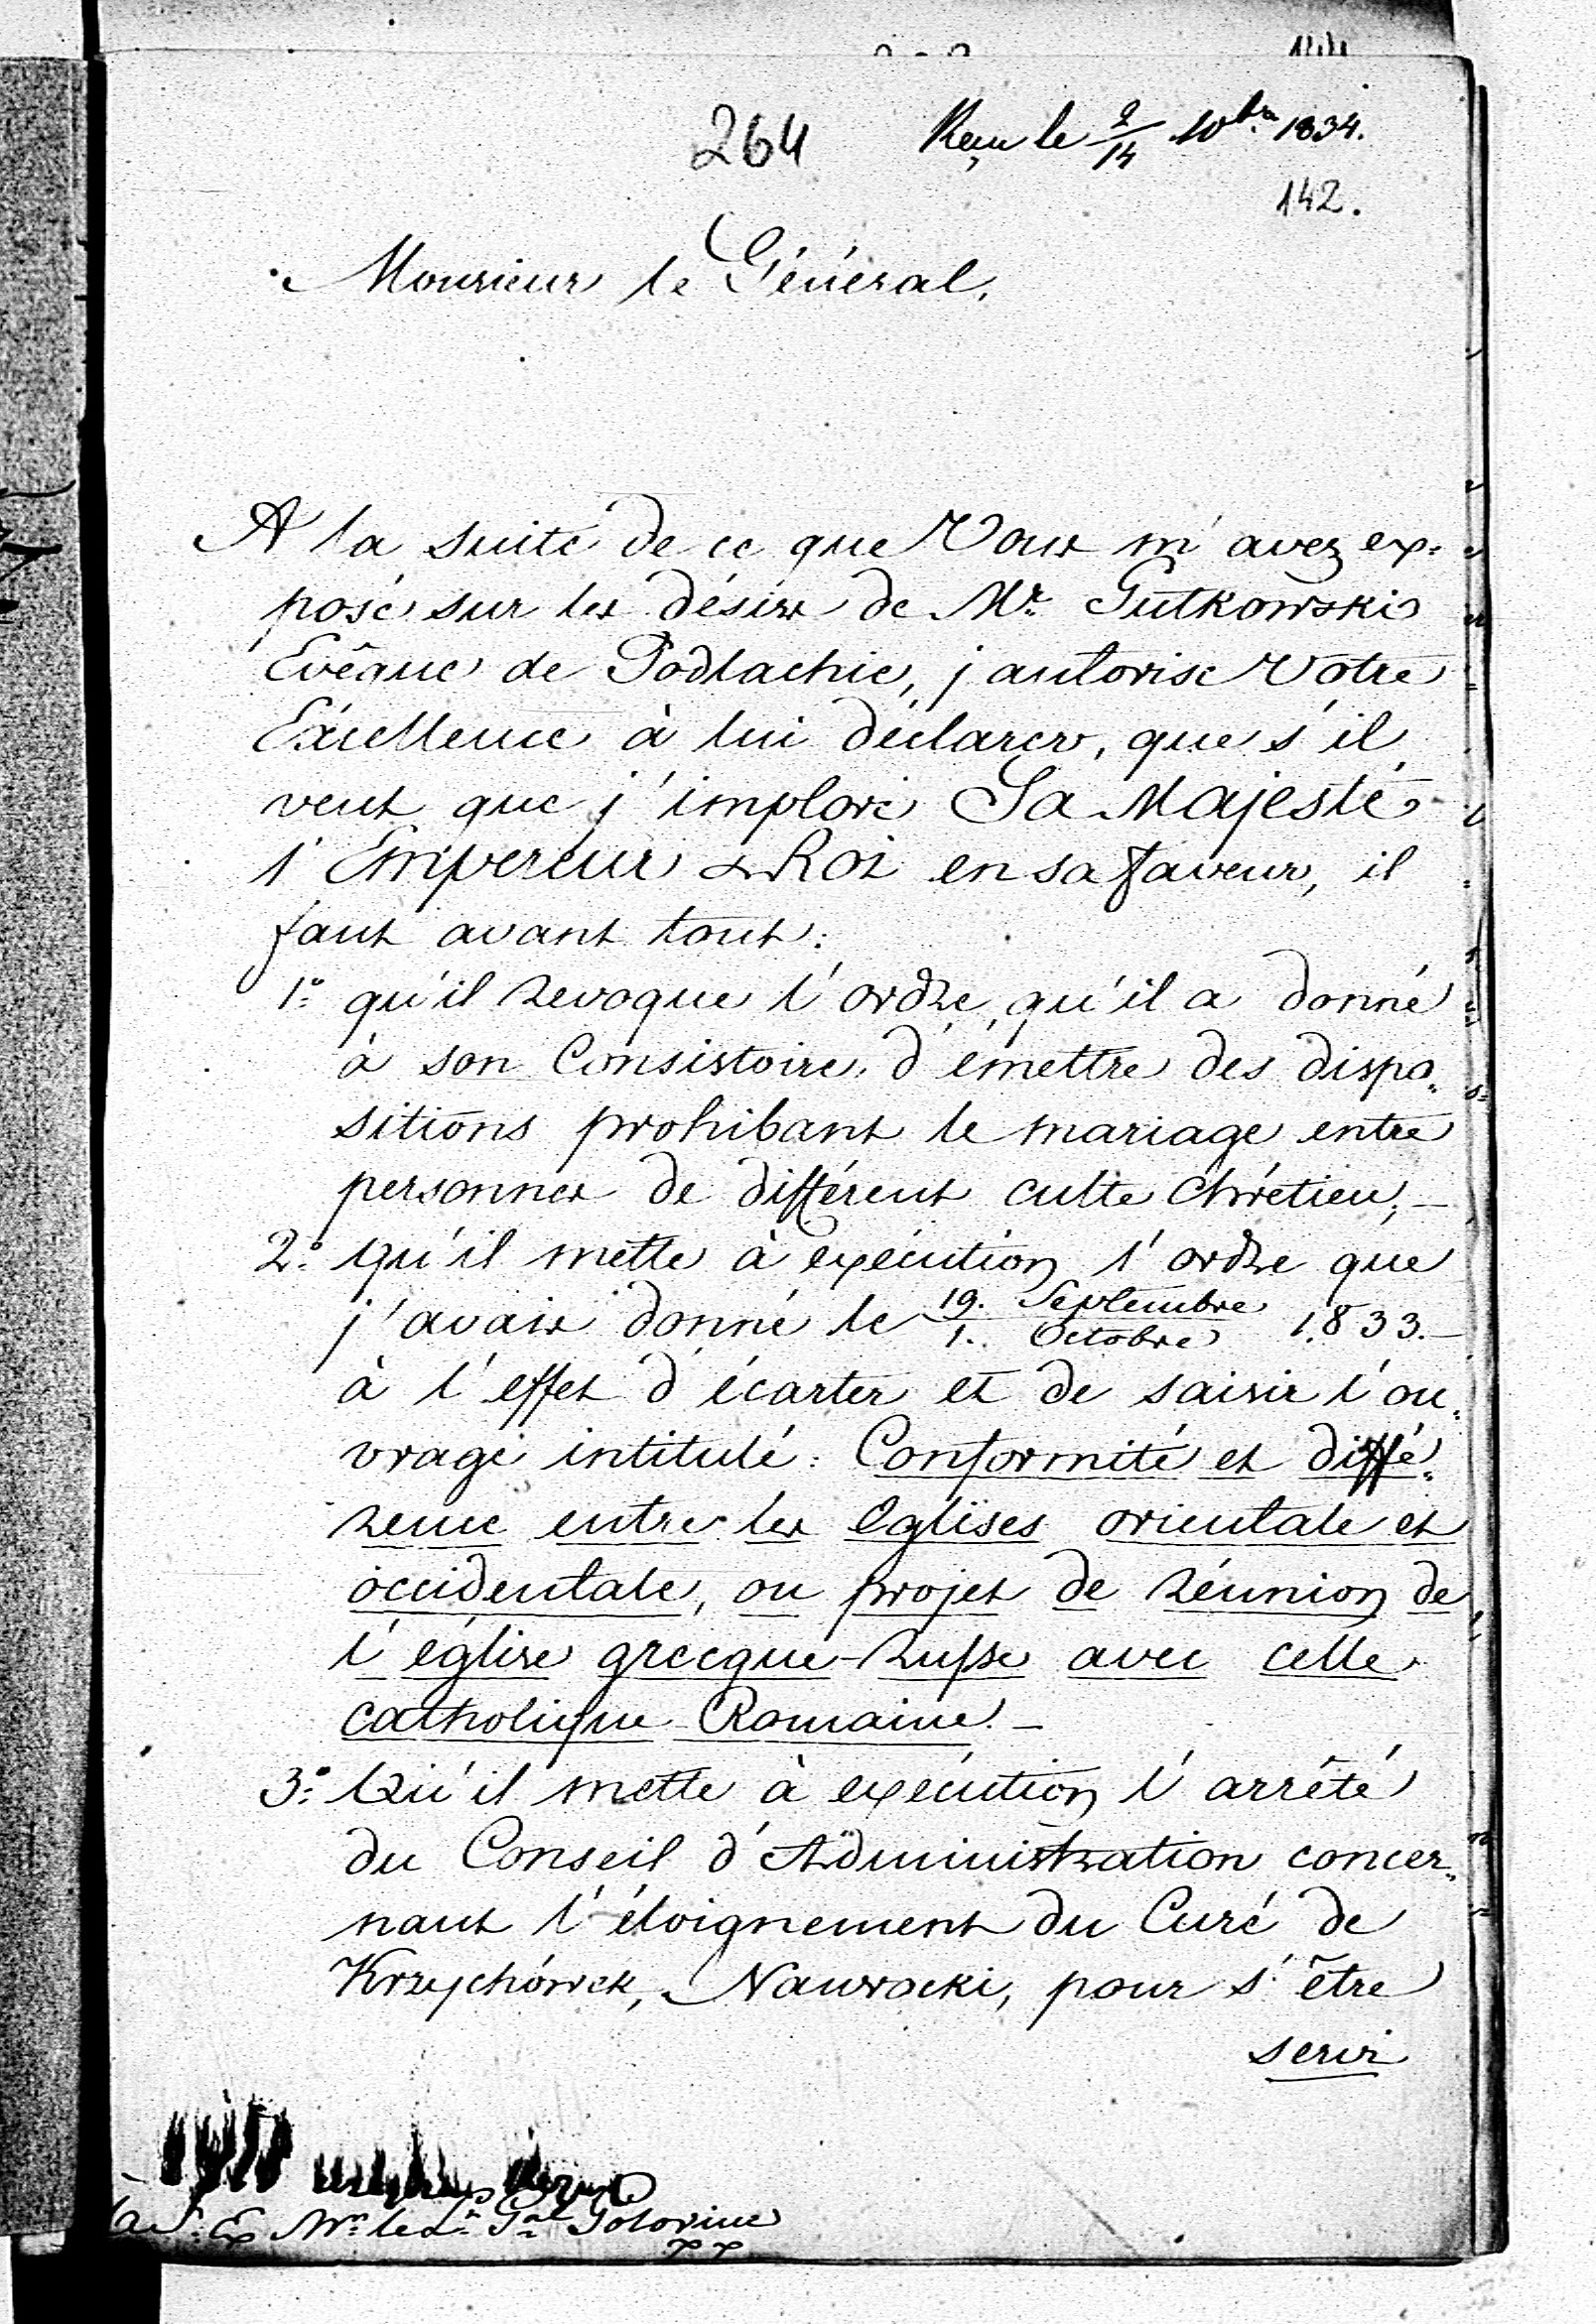 264 Reçu le 2/14 10bre 1834.
142.
Monsieur le Général,
A la suite de ce que Vous m'avez ex=
posé sur les désirs de Mr. Gutkowski
Evêque de Podlachie, j'autorise Votre
Excellence à lui déclarer, que s'il
veut que j'implore Sa Majesté
l'Empereur & Roi en sa faveur, il
faut avant tout:
1° qu'il revoque l'ordre, qu'il a donné
à son Consistoire, d'émettre des dispo=
sitions prohibant le mariage entre
personnes de différent culte Chrétien;—
2° qu'il mette à exécution l'ordre que
j'avais donné le 19. Septembre/1. Octobre 1833.—
à l'effet d'écarter et de saisir l'ou=
vrage intitulé: Conformité et diffé=
rence entre les églises orientale et
occidentale, ou projet de réunion de
l'église grecque-Russe avec celle
catholique Romaine.—
3° Qu'il mette à exécution l'arrêté
du Conseil d'Administration concer=
nant l'éloignement du Curé de
Krzychówek, Nawrocki, pour s'être
servi
à S. Ex Mr. le Lt. Gal Golovine